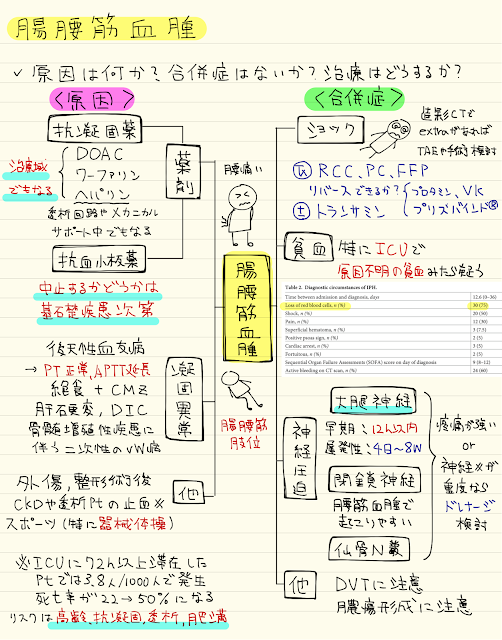 腸腰筋血腫
✓原因は何か?合併症はないか?治療はどうするか?
<原因>
抗凝固薬
DOAC
ワーファリン
ヘパリン
治療域でもなる
透析回路やメカニカル
サポート中でもなる
抗血小板薬
薬剤
中止するかどうかは
基礎疾患次第
後天性血友病
→PT正常,APTT延長
絶食+CMZ
肝硬変,DIC
骨髄増殖性疾患に
伴う二次性のvW病
凝固異常
外傷,整形術後
CKDや透析Ptの止血×
スポーツ(特に器械体操)
他
※ICUに72h以上滞在した
Ptでは3.8人/1000人で発生
死亡率が22→50%になる
リスクは高齢,抗凝固,透析,肥満
腰痛い
腸腰筋血腫
腸腰筋
肢位
<合併症>
ショック
造影CTで
extraがあれば
TAEや手術検討
RCC,PC,FFP
リバースできるか?
プロタミン,VK
プリズバインド®
± トランサミン
貧血
特にICUで
原因不明の貧血みたら疑う
Table 2. Diagnostic circumstances of IPH.
Time between admission and diagnosis, days 12.6 (0–36)
Loss of red blood cells, n (%) 30 (75)
Shock, n (%) 20 (50)
Pain, n (%) 12 (30)
Superficial hematoma, n (%) 3 (7.5)
Positive psoas sign, n (%) 2 (5)
Cardiac arrest, n (%) 2 (5)
Fortuitous, n (%) 2 (5)
Sequential Organ Failure Assessments (SOFA) score on day of diagnosis 9 (8–12)
Active bleeding on CT scan, n (%) 24 (60)
神経圧迫
大腿神経
早期:12h以内
遅発性:4日~8W
閉鎖神経
腸腰筋血腫で
起こりやすい
仙骨N叢
疼痛が強い
or
神経×が
重度なら
ドレナージ
検討
他
DVTに注意
膿瘍形成に注意